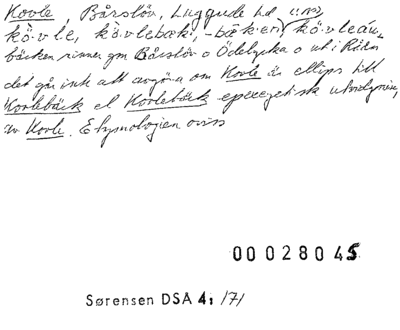 Kovle, Bårslöv, Luggude hd
kȯ·vle, kȯ·vlebæk, -bæken, kȯ·vleån,
bäcken rinner gm Bårslöv o Ödelycka o ut i Råån
det går inte att avgöra om Kovle är ellips till
Kovlebäck el Kovlebäck epexegetisk utvidgning
av Kovle. Etymologien oviss
00028045
Sørensen DSA 4: 171